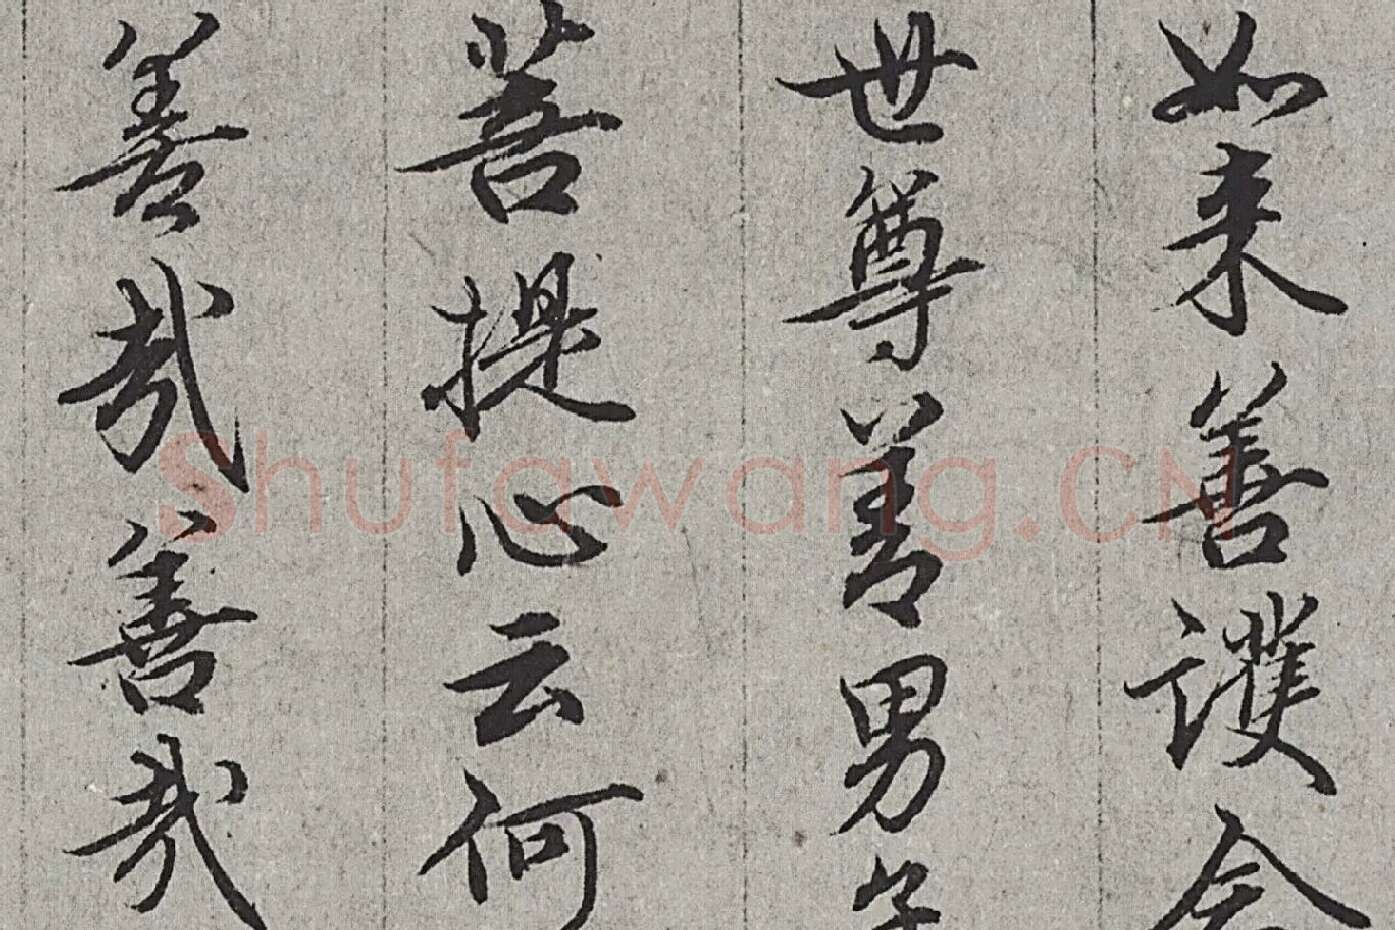 如来善護念
世尊善男子
菩提心云何
善哉善哉
Shufawang.CN